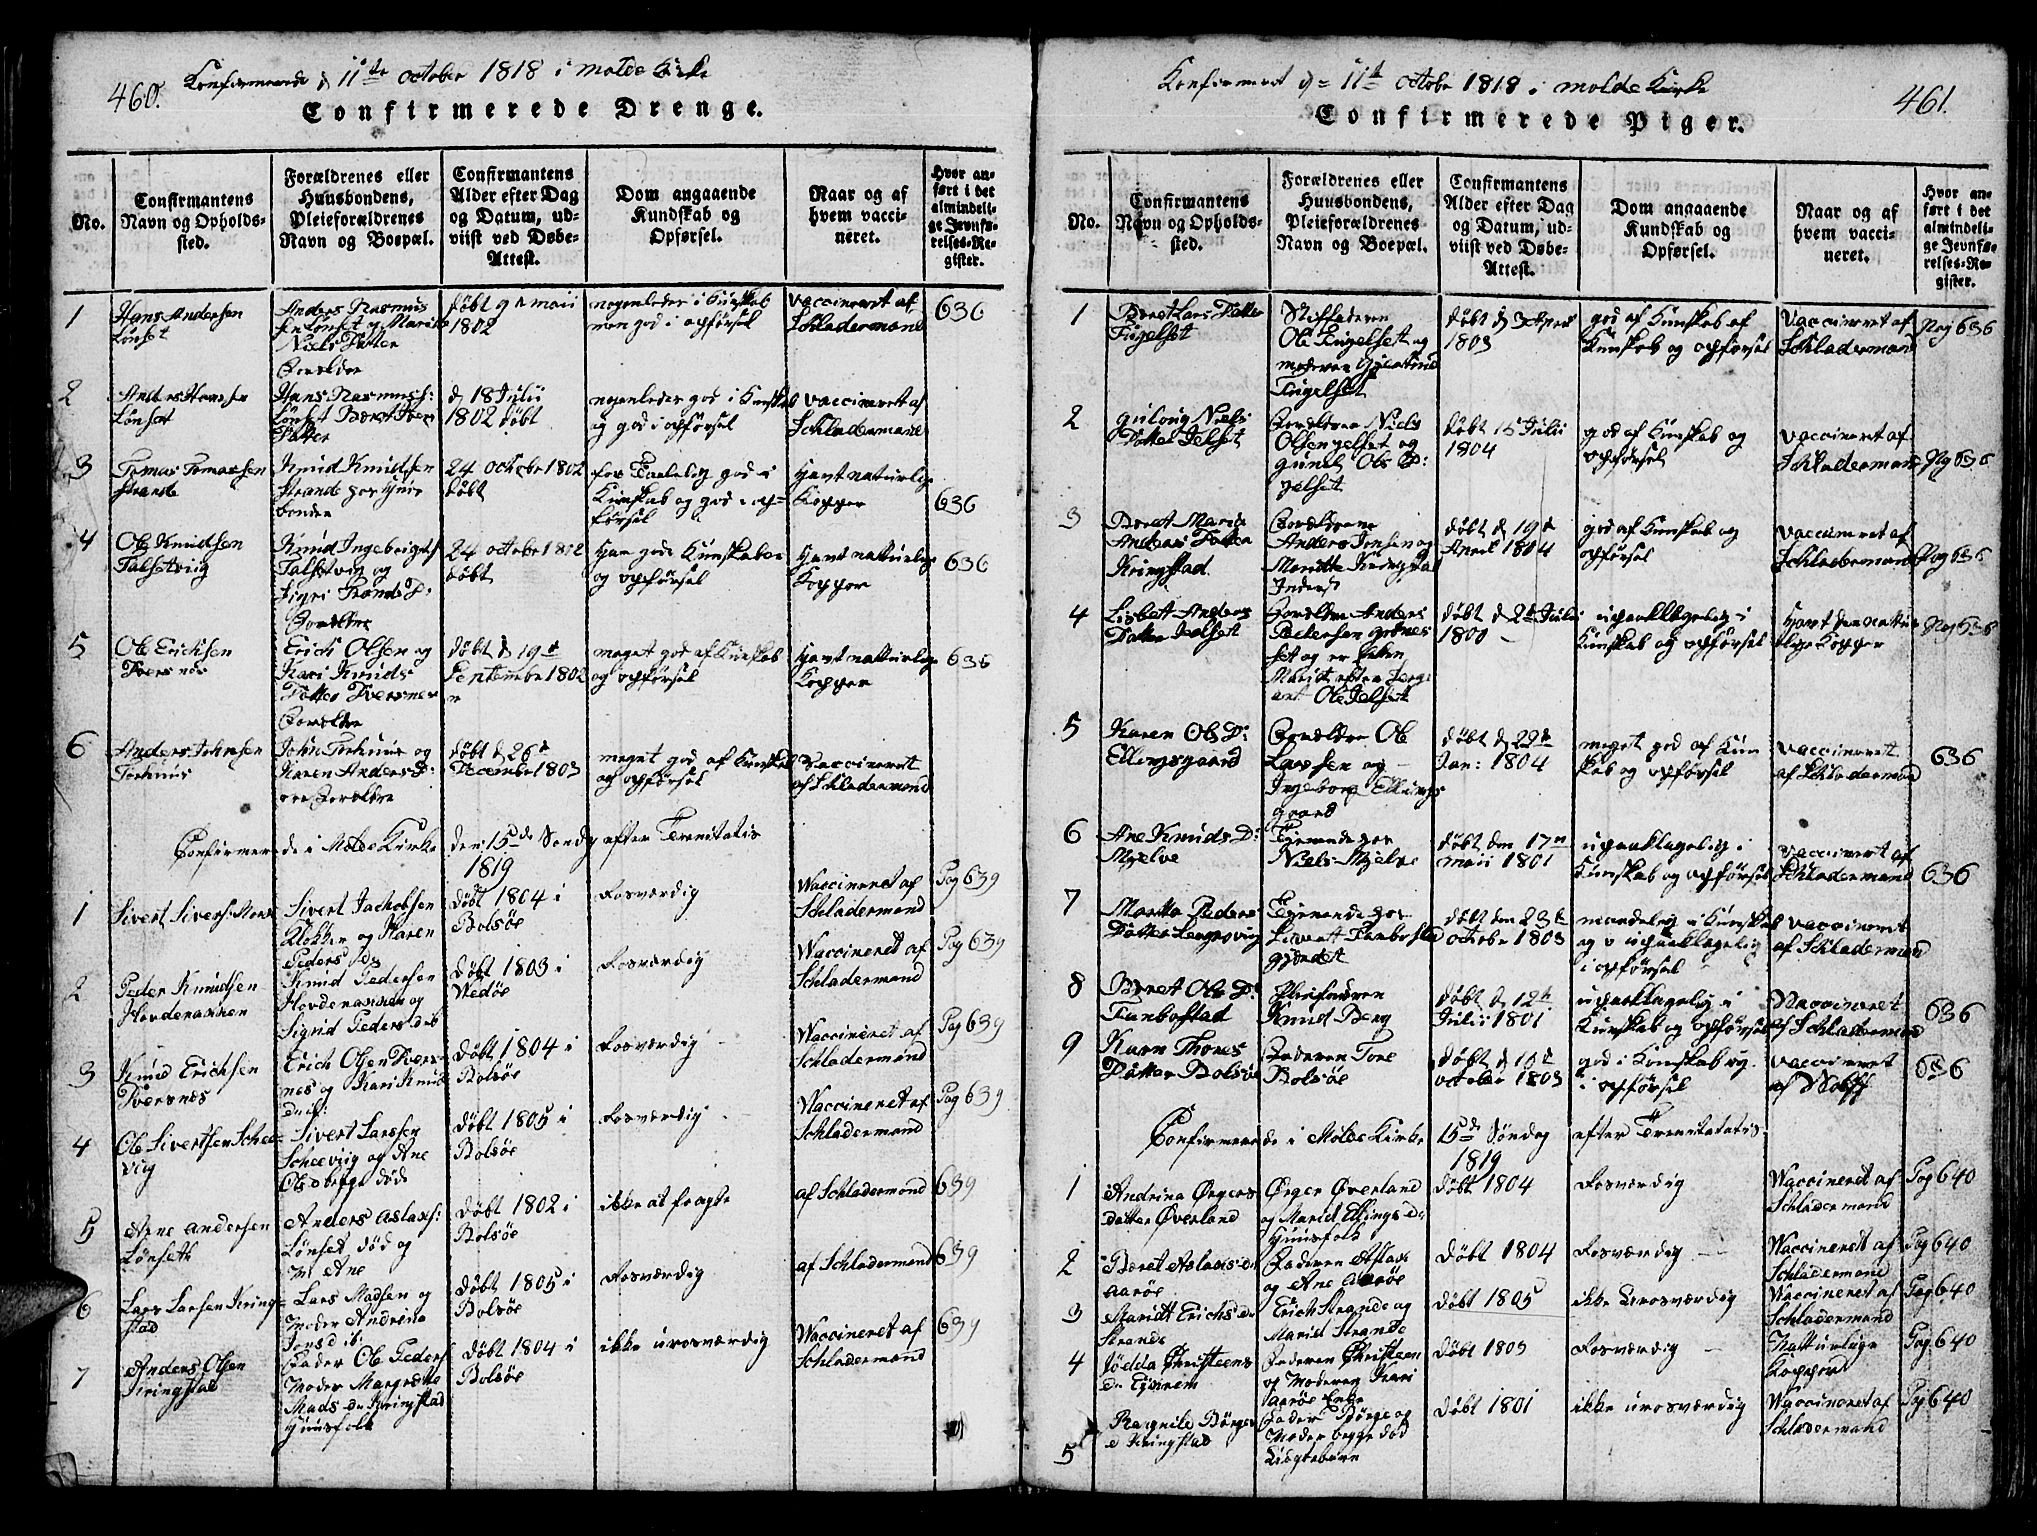 460.
Konfirmerede d 11te october 1818 i molde Kirke
Confirmerede Drenge.
No.
Confirmantens Navn og Opholds-sted.
Forældrenes eller Huusbondens, Pleieforældrenes Navn og Boepæl.
Confirmantens Alder efter Dag og Datum, ud-viist ved Døbe-Attest.
Dom angaaende Kundskab og Opførsel.
Naar og af hvem vacci-neret.
Hvor an-ført i det almindeli-ge Jevnfø-relses-Re-gister.
1
Hans Andersen
Lønset
Anders Rasmus
sen Lonset og Marite
Niels Datter
Forældre
Døbt 9n maii
1802
nogenledes i Kunskab
men god i opførsel
Vaccineret af
Schladermand
636
2
Anders Hansen
Lønset
Hans Rasmus:
Lønset Beret Iver
Datter
d 18 Julii
1802 døbt
nogenledes god i Kunskab
og god i opførsel
Vaccineret af
Schladermand
3
Tomas Tomassen
Strande
Knud Knudsen
Strande
bonden
24 octobr 1802
døbt
god i
Kunskab og god i op=
førsel
Havt naturlige
Kopper
636
4
Ole Knudsen
Talsetviig
Knud Ingebrigts
Talsetvig og
Sigri Tronds D:
Forældre
24 octobr 1802
døbt
Har gode Kunskaber
og opførsel
Havt natturlige
Kopper
636
5
Ole Erichsen
Tversnes
Erich Olssen og
Kari Knuds
Datter Tversnes
Forældre
Døbt d 19de
Septembr 1802
meget god af Kunskab
og opførsel
Havt natturlige
Kopper
636
6
Anders Johnsen
Torhuus
John Torhuus og
Karen Anders D:
ere Forældre
Døbt d 26de
December 1803
meget god af Kunskab
og opførsel
Vaccineret
af Schladermand
Confirmerede i Molde Kirke den 15de Sondg after Trenitatis
1819
1
Sivert Sivers:
Sivert Jachobsen
Klokker og Karen
Peders Ds
Døbt 1804 i
Bolsøe
Rosværdig
Waccineret af
Schladermand
Pag 639
2
Peder Knudsen
Hovdenakken
Knud Pedersen
Hovdenakken og
Sigrid Peders
Døbt 1803 i
Wedøe
Rosværdig
Waccineret af
Schladermand
Pag 639
3
Knud Erichsen
Tversnes
Erich Olsen Tvers-
nes og Kari Knud
Døbt 1804 i
Bolsøe
Rosværdig
Waccineret af
Schladermand
Pag 639
4
Ole Sivertsen Schee-
viig
Sivert Larssen
Scheeviig og Ane
Ols d begge død
Døbt 1805 i
Bolsøe
Rosværdig
Waccineret af
Schladermand
Pag 639
5
Arne Andersen
Lønseth
Anders Aslaks:
Lønset død og
M Ane
Døbt 1802 i
Bolsøe
ikke at fragte
af Schladermand
639
6
Lars Larsen Kring-
stad
Lars Madsen og
Moder Andrina
Døbt 1805 i
Bolsøe
Rosværdig
af Schladermand
639
7
Anders Olsen
Kringstad
Fader Ole Peders
Moder Margrethe
Mads dr Kringstad
Huusfolk
Døbt 1804 i
Bolsøe
ikke urosværdig
Waccineret af
Schladermand
639
461.
Konfirmeret d= 11te octobr 1818 i molde Kirke
Confirmerede Piger.
No.
Confirmantens Navn og Opholds-sted.
Forældrenes eller Huusbondens, Pleieforældrenes Navn og Boepæl.
Confirmantens Alder efter Dag og Datum, ud-viist ved Døbe-Attest.
Dom angaaende Kundskab og Opførsel.
Naar og af hvem vacci-neret.
Hvor an-ført i det almindeli-ge Jevnfø-relses-Re-gister.
1
Beret Lars Datter
Fugelset
Stiffaderen
Ole Fugelset og
moderen
Fugelset
Døbt d 3 April
1803
god af Kunskab af
Kunskab og opførsel
Vaccineret af
Schladermand
Pag 636
2
Guloug Niels
Datter Jelset
Foreldre Niels
Olsen gelset og
Guned Ols D:
gelset
Døbt 15 Julii
1804
god af Kunskab og
opførsel
Vaccineret af
Schladermand
Pag 636
3
Beret Maria
Anders Datter
Kringstad
Foreldrene
Anders Jensen og
Maritte Kringstad
Inderst
Døbt d 19de
April 1804
god af Kunskab og
opførsel
Vaccineret af
Schladermand
Pag 636
4
Lisbet Anders
Datter Jelset
Foreldre Anders
Pedersen
set og er
Marit
Ole Jelset
Døbt d 2de Julii
1800
upaaklagelig i
Kunskab og opførsel
Havt den nattur
lige Kopper
Pag 636
5
Karen Ols D:
Ellingsgaard
Forældre Ole
Larssen og
Ingeborg Ellings
gaard
Døbt d 22de
Jan: 1804
meget god af Kun
skab og opførsel
Vaccineret
af Schladermand
636
6
Ane Knuds D:
Mjelve
Tjenende hos
Niels Mjelve
Døbt den 17n
maii 1801
upaaklagelig i
Kunskab og opførsel
Vaccineret af
Schladermand
636
7
Marta Peders
Datter
Tjenende hos
Sivert
Døbt den 23de
octobr 1803
maadelig i Kunskab
og upaaklagelig
i opførsel
Vaccineret
af Schladermand
8
Beret Ols D:
Pleiefaderen
Knud Berg
Døbt d 12te
Julii 1801
upaaklagelig i
Kunskab og opførsel
Vaccineret
af Schladermand
636
9
Karn Thores
Datter Bolsøe
Faderen Tore
Bolsøe
Døbt d 10de
october 1803
god i Kunskab og
i opførsel
Vaccineret
af Wolff
636
Confirmerede i Molde Kirke 15de Søndag efter Trenitatatis
1819
1
Andrina Ørgers
datter Øverland
Ørger Øverland
og Marid Ellings dr
Huusfolk
Døbt 1804
Rosværdig
Waccineret af
Schladermand
Pag 640
2
Beret Aslaks dr
Aarøe
Faderen Aslak
og Ane Aarøe
Døbt 1804
Rosværdig
Waccineret af
Schladermand
Pag 640
3
Maridt Erichs dr
Strande
Erich Strande og
Marid Strande
Døbt 1805
ikke Urosværdig
Waccineret af
Schladermand
Pag 640
4
Christeens
dr
Faderen Christeen
og Moderen Kari
Aarøe
Døbt 1803
Rosværdig
Natturlige
Kopper
Pag 640
5
Ragnild Børges
d Kringstad
Fader Børge og
Moder begge død
Døbt 1801
ikke urosværdig
Waccineret af
Schladermand
Pag 640